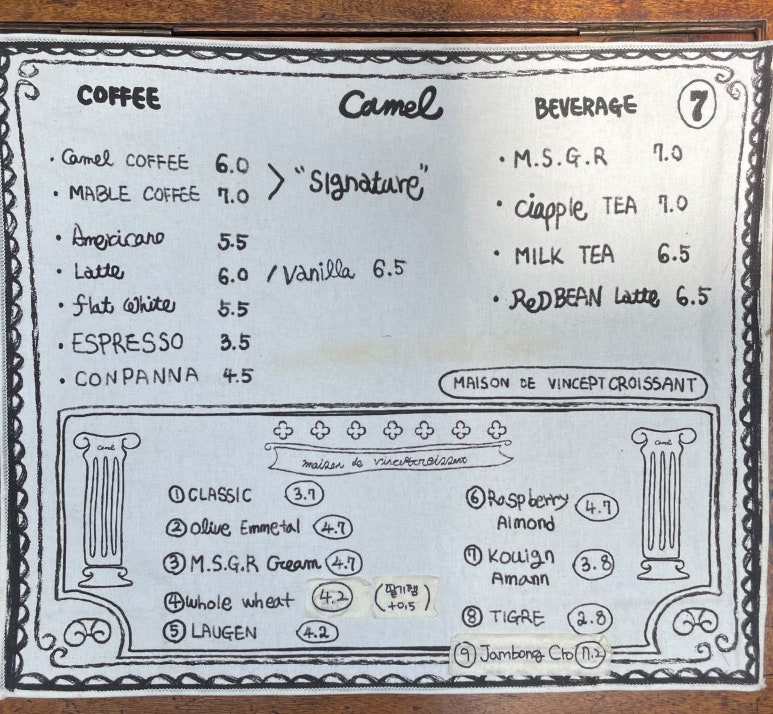 COFFEE
Camel
BEVERAGE
7
· Camel COFFEE 6.0
· MABLE COFFEE 7.0
> "Signature"
· Americano 5.5
· Latte 6.0 / Vanilla 6.5
· flat white 5.5
· ESPRESSO 3.5
· CONPANNA 4.5
· M.S.G.R 7.0
· Ciapple TEA 7.0
· MILK TEA 6.5
· ReD BEAN Latte 6.5
MAISON DE VINCEPT CROISSANT
maison de vinceptcroissant
Camel
Camel
① CLASSIC 3.7
② Olive Emmetal 4.7
③ M.S.G.R Cream 4.7
④ whole wheat 4.2 (딸기잼
+0.5)
⑤ LAUGEN 4.2
⑥ Raspberry 4.7
Almond
⑦ Kouign 3.8
Amann
⑧ TIGRE 2.8
⑨ Jambong Cto 7.2